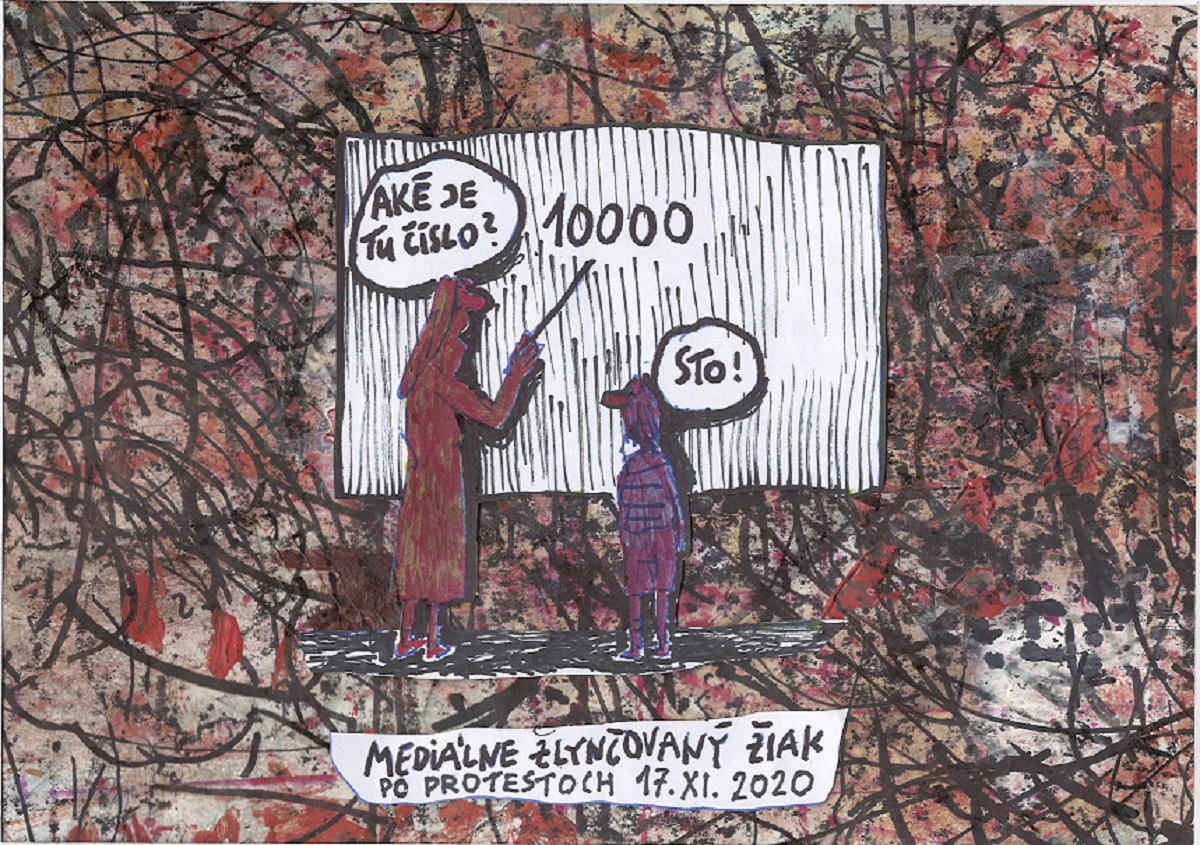 AKÉ JE
TU ČÍSLO?
10000
STO!
MEDIÁLNE ZLYNČOVANÝ ŽIAK
PO PROTESTOCH 17.XI. 2020